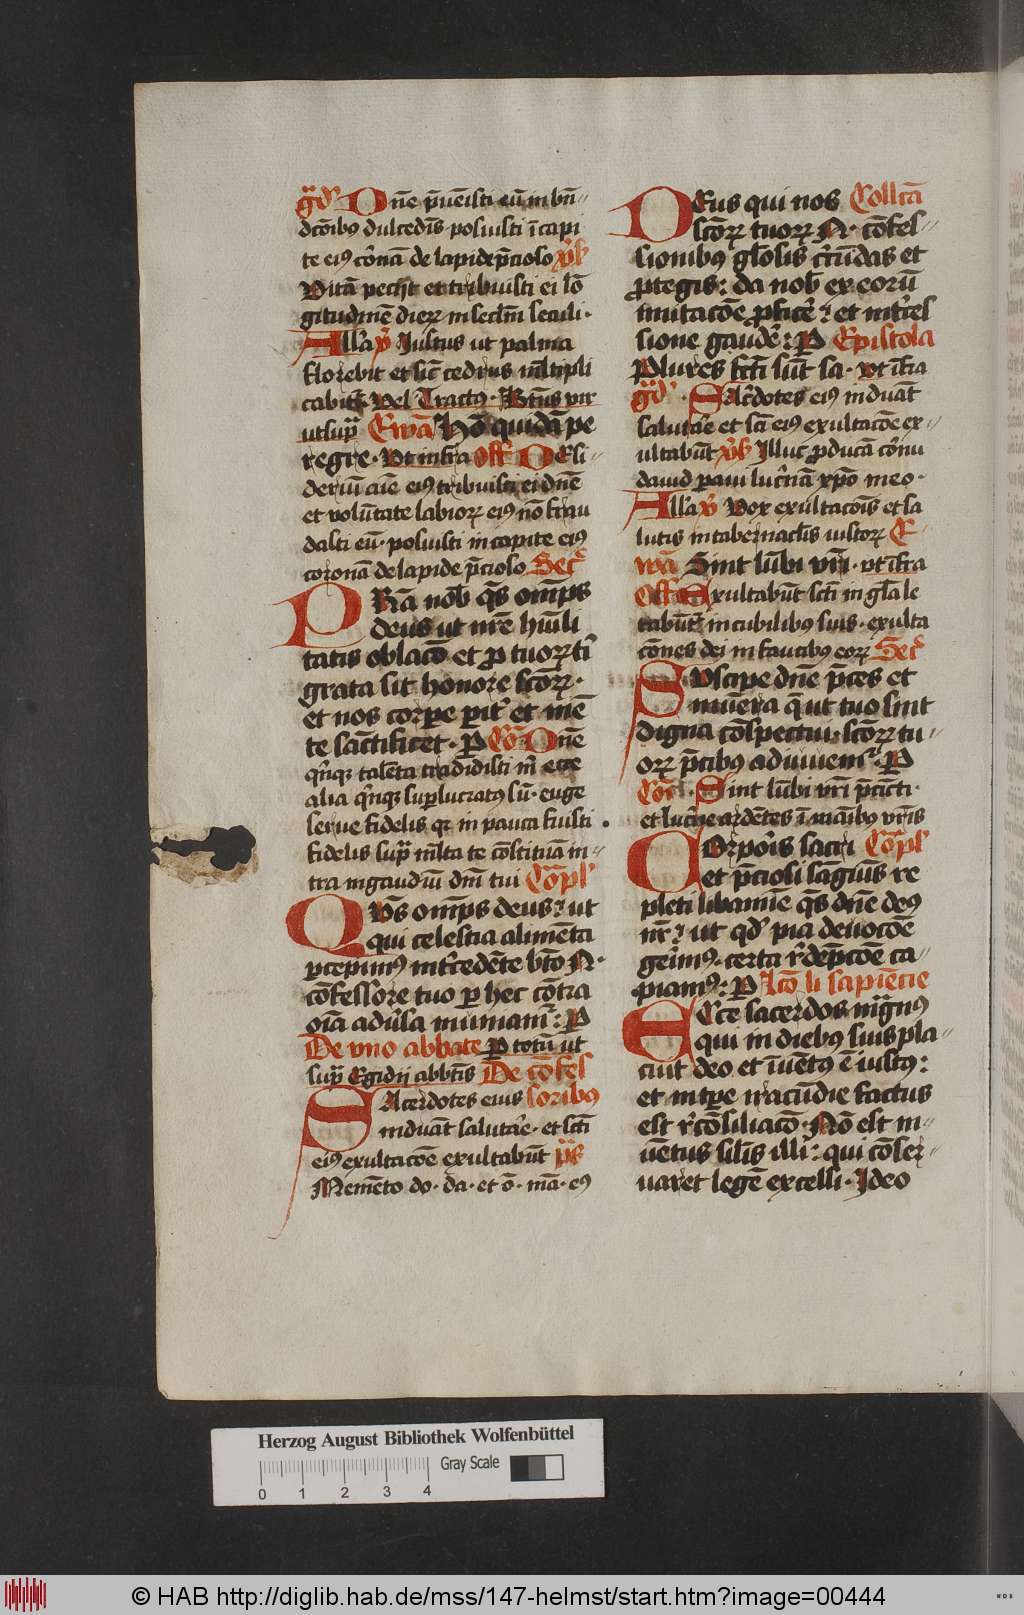 g̈d' One p̄uēisti eū in bn̄-
dcōib9 dulcedīs posuisti ī capi
te ei9 corōnā de lapide p̄cioso v̓s
Vitā peciit et tribuisti ei lō
gitudinē dierꝝ in seclm̄ seculi·
All'a v̓ Iustus ut palma
florebit et sic̄ cedrus ml̄tipli
cabit᷑· Vel Tractus· Bt̄us vir
ut supͣ Ewā Hō quidā pe
regre· Vt infra Off Desi-
deriū aīe ei9 tribuisti ei dn̄e
et volūtate labiorꝝ ei9 nō frau
dasti eū· posuisti in capite ei9
coronā de lapide p̄cioso Secͬ
PRā nob̄ qs̄ omīps
deus ut nr̄e hūili
tatis oblacō et ꝓ tuorꝝ t'
grata sit honore scōrꝝ·
et nos corpe pit᷑ et mē
te sāctificet· P Cō One
qn̄qꝫ talēta tradidisti m̄ ecce
alia qn̄qꝫ suplucrat9 sū· euge
serue fidelis qꝛ in pauca fuisti
fidelis supͣ ml̄ta te cōstituā in-
tra in gaudiū dn̄i tui Cōpl'
QVs̄ omīps deus· ut
qui celestia alimēta
pcepim9 int'cedēte bt̄o N·
cōfessore tuo p hec cōtra
oīa adūsa muniam᷑: P
De vno abbate P totū ut
supͣ Egidij abbīs De cōfes
Sacerdotes eius soribus
induāt salutare· et sct̄i
ei9 exultacōe exultabūt p̄s
Memēto do· da· et ō· mā· ei9
DEus qui nos Collc̄ā
scōrꝝ tuorꝝ N· cōfes-
sionib9 gl̄osis c̄rcūdas et
ꝓtegis: da nob̄ ex eorū
imitacōe ꝓficē᷑ et int'ces
sione gaudē᷑: P Epistola
Plures fc̄ti sūt sa· vt īfra
g̈d'· Sac̓dotes ei9 induāt
salutare et sc̄i ei9 exultacōe ex-
ultabūt v̓s Illuc ꝓducā cōrnu
dauid paui luc̓nā xp̄o meo·
All'a v̓ Vox exultacōis et sa
lutis in tabernacl'is iustorꝝ E-
wā Sint lūbi vr̄i· vt īfra
Off Exultabūt sct̄i in gl̄a le
tabūt᷑ in cubilibus suis· exulta
cōnes dei in faucib9 eorꝝ Secͬ
SVscipe dn̄e p̄ces et
munera q̄ ut tuo sint
digna cōspectui· scōrꝝ tu-
orꝝ p̄cib9 adiuuem᷑· P
Cō· Sint lūbi vr̄i p̄cicti·
et luc̓ne ardētes ī manib9 vr̄is
Corpōis sacri Cōpl'
et p̄ciosi sāguīs re
pleti libamīe qs̄ dn̄e de9
nr̄: ut qd' pia deuocōe
gerim9· certa r̓dēpcōe ca-
piam9: P Lcō li sapiēcie
Ecce sacerdos mͣgn9
qui in dieb9 suis pla-
cuit deo et īuēt9 ē iust9:
et in tpe iracūdie factus
est r̓cōsiliacō· Nō est in-
uētus silīs illi: qui cōser-
uaret legē excelsi· Ideo
Herzog August Bibliothek Wolfenbüttel
Gray Scale
0 1 2 3 4
© HAB http://diglib.hab.de/mss/147-helmst/start.htm?image=00444